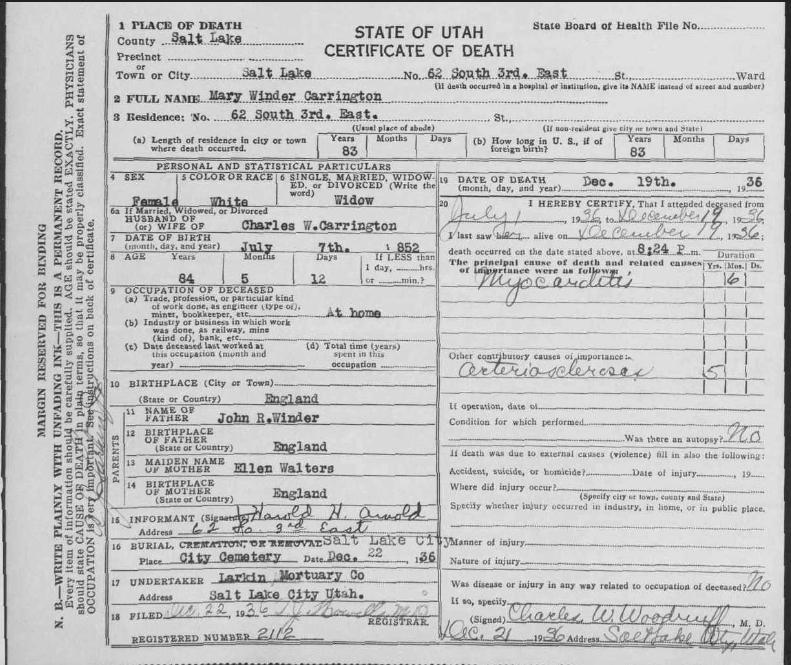 STATE OF UTAH
CERTIFICATE OF DEATH
State Board of Health File No.
1 PLACE OF DEATH
County Salt Lake
Precinct
or
Town or City Salt Lake No. 62 South 3rd. East St., Ward
(If death occurred in a hospital or institution, give its NAME instead of street and number)
2 FULL NAME Mary Winder Carrington
3 Residence: No. 62 South 3rd. East. St.
(Usual place of abode) (If non-resident give city or town and State)
(a) Length of residence in city or town where death occurred. Years Months Days
83
(b) How long in U. S., if of foreign birth? Years Months Days
83
PERSONAL AND STATISTICAL PARTICULARS
4 SEX 5 COLOR OR RACE 6 SINGLE, MARRIED, WIDOW-
ED, or DIVORCED (Write the
word)
Female White Widow
6a If Married, Widowed, or Divorced
HUSBAND OF
(or) WIFE OF Charles W.Carrington
7 DATE OF BIRTH
(month, day, and year) July 7th. 1852
8 AGE Years Months Days If LESS than
1 day, hrs.
84 5 12 or min.?
9 OCCUPATION OF DECEASED
(a) Trade, profession, or particular kind
of work done, as engineer (type of),
miner, bookkeeper, etc. At home
(b) Industry or business in which work
was done, as railway, mine
(kind of), bank, etc.
(c) Date deceased last worked at
this occupation (month and
year)
(d) Total time (years)
spent in this
occupation
10 BIRTHPLACE (City or Town)
(State or Country) England
PARENTS
11 NAME OF
FATHER John R.Winder
12 BIRTHPLACE
OF FATHER
(State or Country) England
13 MAIDEN NAME
OF MOTHER Ellen Walters
14 BIRTHPLACE
OF MOTHER
(State or Country) England
15 INFORMANT (Signed) Harold H. Arnold
Address 62 So 3rd East
16 BURIAL, CREMATION, OR REMOVAL Salt Lake City
Place City Cemetery Date Dec. 22, 1936
17 UNDERTAKER Larkin Mortuary Co
Address Salt Lake City Utah.
18 FILED Dec. 22, 1936 M D
REGISTRAR.
REGISTERED NUMBER 2112
19 DATE OF DEATH
(month, day, and year) Dec. 19th. , 1936
20 I HEREBY CERTIFY, That I attended deceased from
July 1, 1936 to December 19, 1936
I last saw her alive on December 19, 1936;
death occurred on the date stated above, at 8:24 P m.
The principal cause of death and related causes
of importance were as follows: Duration
Yrs. Mos. Ds.
Myocarditis 6
Other contributory causes of importance:
Arteriosclerosas 5
If operation, date of
Condition for which performed
Was there an autopsy? No
If death was due to external causes (violence) fill in also the following:
Accident, suicide, or homicide? Date of injury , 19
Where did injury occur?
(Specify city or town, county and State)
Specify whether injury occurred in industry, in home, or in public place.
Manner of injury
Nature of injury
Was disease or injury in any way related to occupation of deceased? No
If so, specify
(Signed) Charles W. Woodruff, M. D.
Dec. 21 1936 Address Salt Lake City, Utah
MARGIN RESERVED FOR BINDING
N. B.—WRITE PLAINLY WITH UNFADING INK—THIS IS A PERMANENT RECORD.
Every item of information should be carefully supplied. AGE should be stated EXACTLY. PHYSICIANS
should state CAUSE OF DEATH in plain terms, so that it may be properly classified. Exact statement of
OCCUPATION is very important. See instructions on back of certificate.